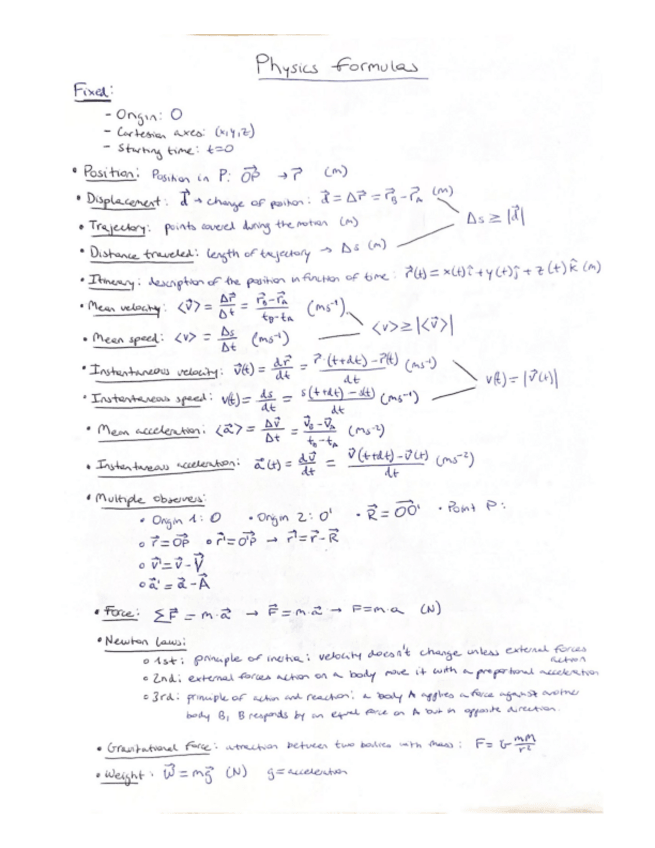 Physics Formulas
Fixed:
- Origin: O
- Cartesian axes: (x,y,z)
- Starting time: t=0
• Position: Position in P: \vec{OP} → \vec{r} (m)
• Displacement: \vec{d} → change of position: \vec{d} = Δ\vec{r} = \vec{r}_B - \vec{r}_A (m)
• Trajectory: points covered during the motion (m)
Δs ≥ |\vec{d}|
• Distance traveled: length of trajectory → Δs (m)
• Itinerary: description of the position in function of time: \vec{r}(t) = x(t)î + y(t)ĵ + z(t)k̂ (m)
• Mean velocity: <\vec{v}> = Δ\vec{r}/Δt = (\vec{r}_B - \vec{r}_A)/(t_B - t_A) (ms⁻¹)
<v> ≥ |<\vec{v}>|
• Mean speed: <v> = Δs/Δt (ms⁻¹)
• Instantaneous velocity: \vec{v}(t) = d\vec{r}/dt = (\vec{r}·(t+dt) - \vec{r}(t))/dt (ms⁻¹)
v(t) = |\vec{v}(t)|
• Instantaneous speed: v(t) = ds/dt = (s(t+dt) - s(t))/dt (ms⁻¹)
• Mean acceleration: <\vec{a}> = Δ\vec{v}/Δt = (\vec{v}_B - \vec{v}_A)/(t_B - t_A) (ms⁻²)
• Instantaneous acceleration: \vec{a}(t) = d\vec{v}/dt = (\vec{v}(t+dt) - \vec{v}(t))/dt (ms⁻²)
• Multiple observers:
• Origin 1: O • Origin 2: O' • \vec{R} = \vec{OO'} • Point P:
o \vec{r} = \vec{OP} o \vec{r}' = \vec{O'P} → \vec{r}' = \vec{r} - \vec{R}
o \vec{v}' = \vec{v} - \vec{V}
o \vec{a}' = \vec{a} - \vec{A}
• Force: Σ\vec{F} = m·\vec{a} → \vec{F} = m·\vec{a} → F = m·a (N)
• Newton laws:
o 1st: principle of inertia: velocity doesn't change unless external forces action
o 2nd: external forces action on a body move it with a proportional acceleration
o 3rd: principle of action and reaction: a body A applies a force against another
body B, B responds by an equal force on A but in opposite direction.
• Gravitational Force: attraction between two bodies with mass: F = G mM/r²
• Weight: \vec{W} = m\vec{g} (N) g = acceleration